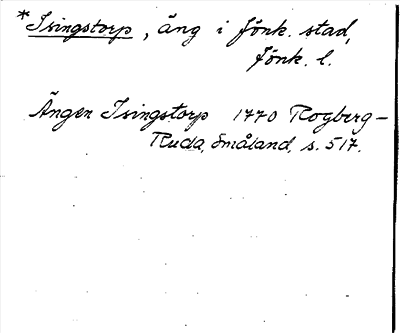 *Isingstorp, äng i Jönk. stad,
Jönk. l.
Ängen Isingstorp 1770 Rogberg-
Ruda, Småland, s. 517.